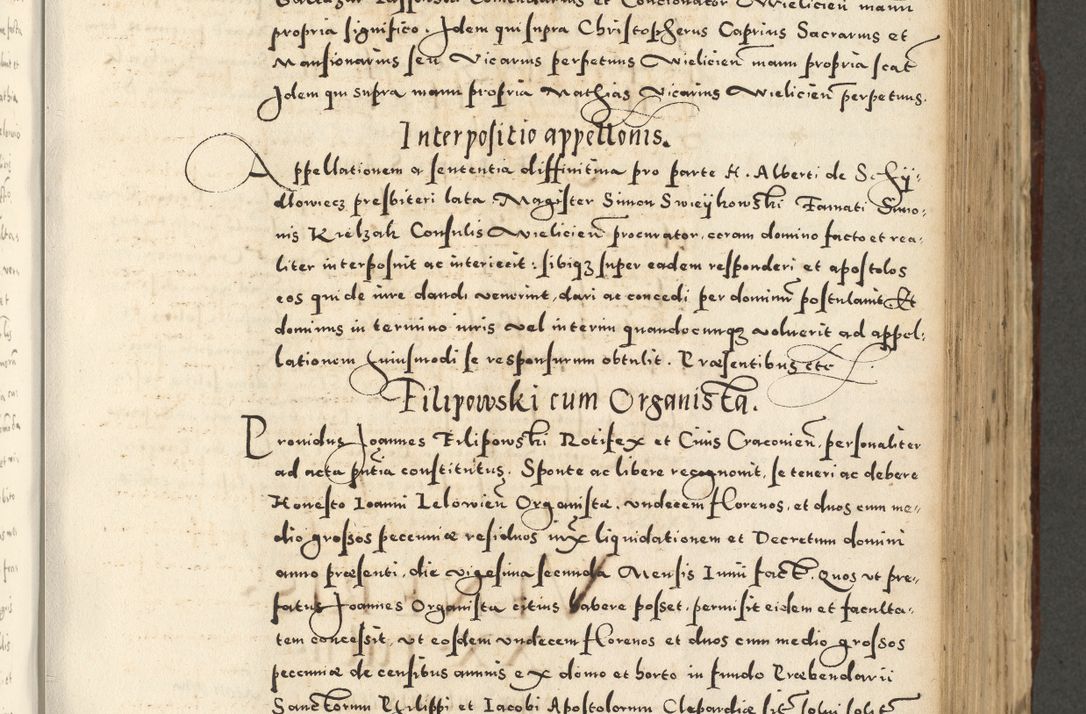 propria significo. Idem qui supra Christopherus Caprius Sacrarius et
Mansionarius seu Vicarius perpetuus Wielicien manu propria scat
Idem qui supra manu propria Mathias Vicarius Wielicien perpetuus.
Interpositio appellonis.
Appellationem a sententia diffinitiua pro parte H. Alberti de Schÿ-
dlowiecz presbiteri lata Magister Simon Swieÿkowski Famati Simo-
nis Kielzak Consulis Wielicien procurator, coram domino facto et rea-
liter interposuit ac interiecit: sibiqz super eadem responderi et apostolos
eos qui de iure dandi venerint, dari ac concedi per dominum postulauit. Et
dominus in termino iuris vel interim quandocunqz voluerit ad appel-
lationem huiusmodi se responsurum obtulit. Præsentibus etc.
Filipowski cum Organista.
Prouidus Joannes Filipowski Rotifex et Ciuis Craconien. personaliter
ad acta pñtia constitutus. Sponte ac libere recognouit, se teneri ac debere
Honesto Ioanni Lelowien Organistæ, vndecem florenos, et duos cum me-
dio grossos pecuniæ residuos iux liquidationem et Decretum domini
anno præsenti, die vigesima secunda Mensis Iunii fact. Quos vt pre-
fatus Joannes Organista citius habere posset, permisit eidem et faculta-
tem concessit, vt eosdem vndecem florenos et duos cum medio grossos
pecuniæ de censibus annuis ex domo et horto in fundo Præbendarii
Sanctorum Philippi et Iacobi Apostolorum Clepardiæ